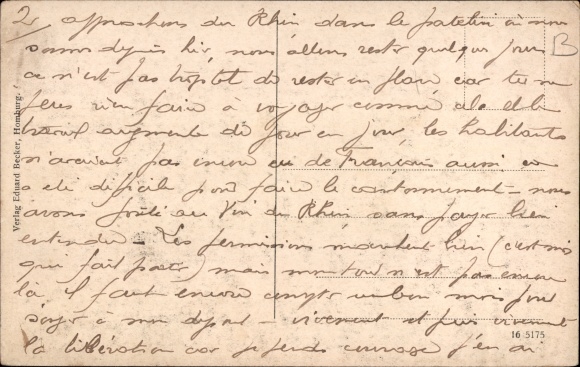 2, approchons du Rhin dans le patelin où nous
sommes depuis hier, nous allons rester quelques jours
ce n'est pas trop tôt de rester en place car tu ne
peux rien faire à voyager comme
travail augmente de jour en jour, les habitants
n'avaient pas encore eu de Français aussi
a été difficile pour faire le cantonnement - nous
avons goûté au Vin du Rhin sans payer bien
entendu - Les permissions marchent bien (c'est moi
qui fait) mais mon tour n'est pas encore
là il faut encore compter un bon mois pour
songer à mon départ - vivement et puis vivement
la libération car je perds courage j'en ai
B
Verlag Eduard Becker, Homburg.
16 5175